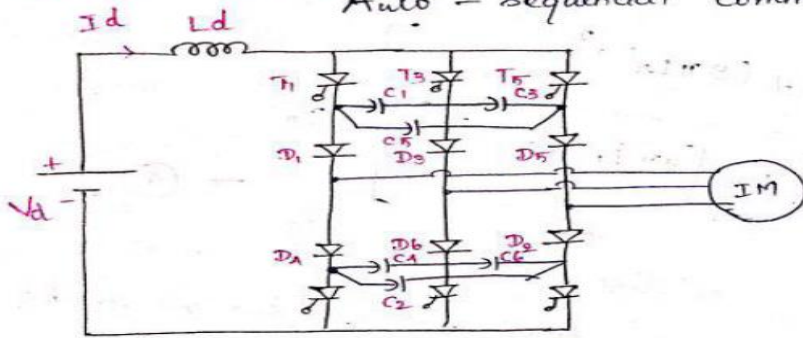 Auto - sequential comm
Id Ld
T1 T3 T5
C1 C3
C5
D1 D3 D5
+
Vd -
IM
D4 D6 D2
C4 C6
C2